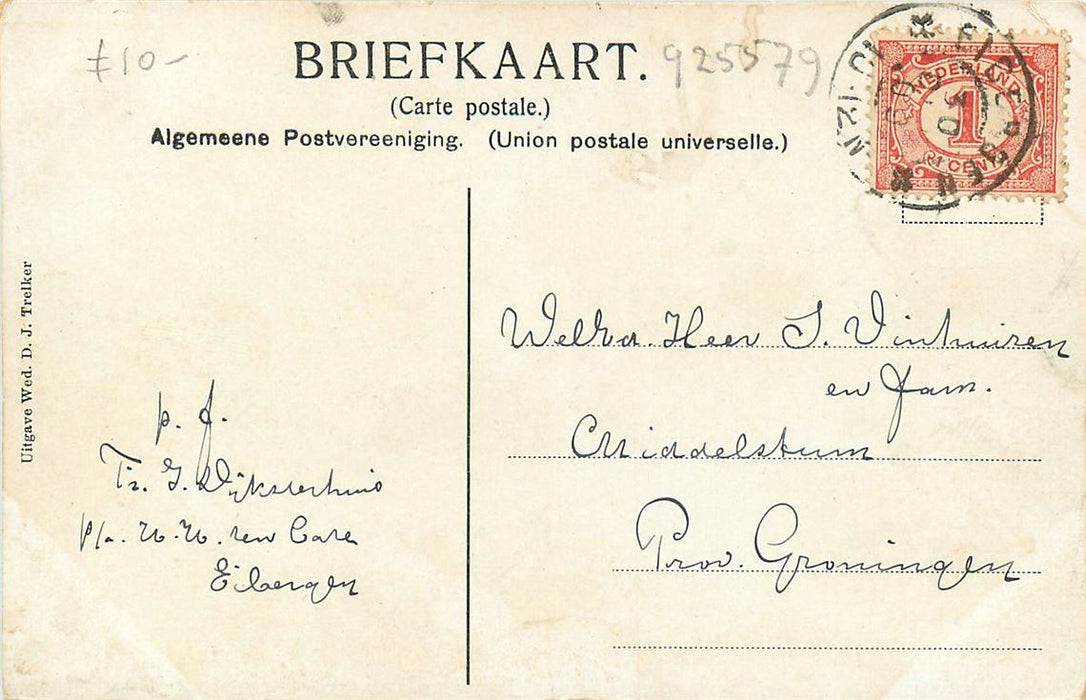 £10-
BRIEFKAART.
925579
(Carte postale.)
Algemeene Postvereeniging. (Union postale universelle.)
NEDERLAND
1
1 CENT
Uitgave Wed. D. J. Trelker
p. f.
Tr. G. Dijksterhuis
p/a. W. W. ten Cate
Eibergen
Heer J. Vinhuizen
en fam.
Middelstum
Prov. Groningen